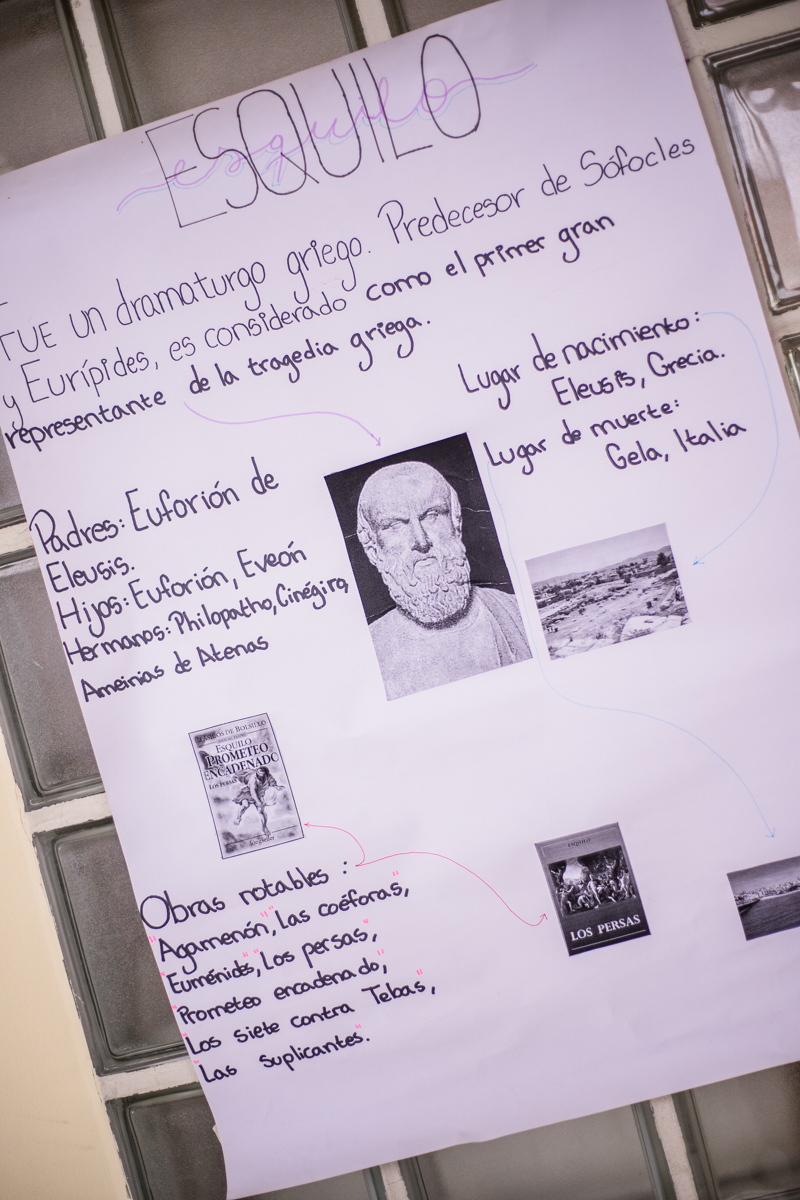 ESQUILO
esquilo
FUE un dramaturgo griego. Predecesor de Sófocles
y Eurípides, es considerado como el primer gran
representante de la tragedia griega.
Lugar de nacimiento:
Eleusis, Grecia.
Lugar de muerte:
Gela, Italia
Padres: Euforión de
Eleusis.
Hijos: Euforión, Eveón
Hermanos: Philopatho, Cinégiro,
Ameinias de Atenas
CLÁSICOS DE BOLSILLO
ESQUILO
PROMETEO
ENCADENADO
LOS PERSAS
Obras notables :
"Agamenón," Las coéforas,"
"Euménides," Los persas,"
"Prometeo encadenado,"
"Los siete contra Tebas",
"Las suplicantes".
ESQUILO
LOS PERSAS